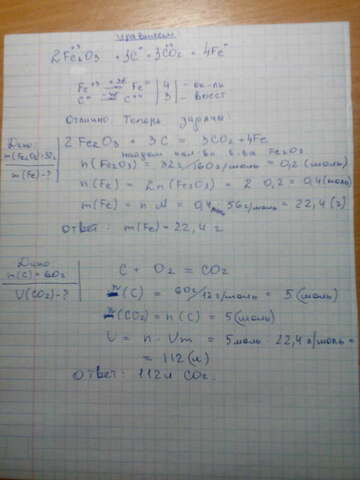 уравняем
2Fe₂⁺³O₃ + 3C⁰ = 3C⁺⁴O₂ + 4Fe⁰
Fe⁺³ +3e → Fe⁰ | 4 | - ок-ль
C⁰ -4e → C⁺⁴ | 3 | - восст
Отлично. Теперь задача:
Дано:
m(Fe₂O₃) = 32г
m(Fe) - ?
2Fe₂O₃ + 3C = 3CO₂ + 4Fe
находим кол-во в-ва Fe₂O₃
n(Fe₂O₃) = 32г/160г/моль = 0,2 (моль)
n(Fe) = 2n(Fe₂O₃) = 2 · 0,2 = 0,4 (моль)
m(Fe) = n · M = 0,4 · 56г/моль = 22,4 (г)
Ответ: m(Fe) = 22,4 г
Дано:
m(C) = 60г
V(CO₂) - ?
C + O₂ = CO₂
n(C) = 60г/12г/моль = 5 (моль)
n(CO₂) = n(C) = 5 (моль)
V = n · Vm = 5моль · 22,4 г/моль =
= 112 (л)
Ответ: 112 л CO₂.